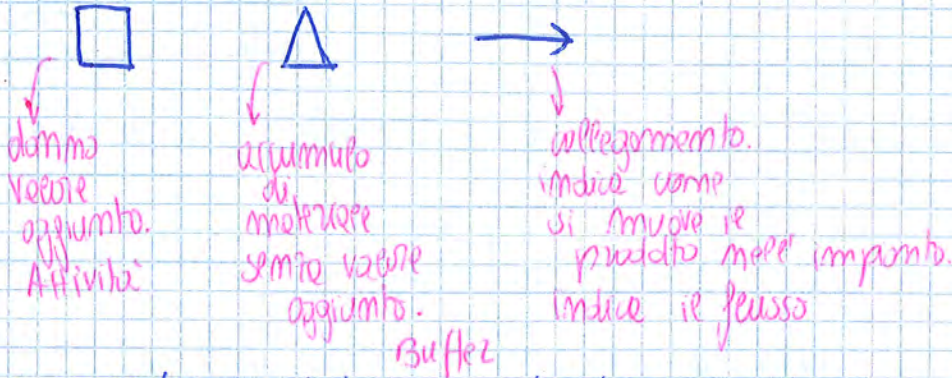 danno
valore
aggiunto.
Attività
accumulo
di
materiale
senza valore
aggiunto.
Buffer
collegamento.
indica come
si muove il
prodotto nell' impianto.
indica il flusso